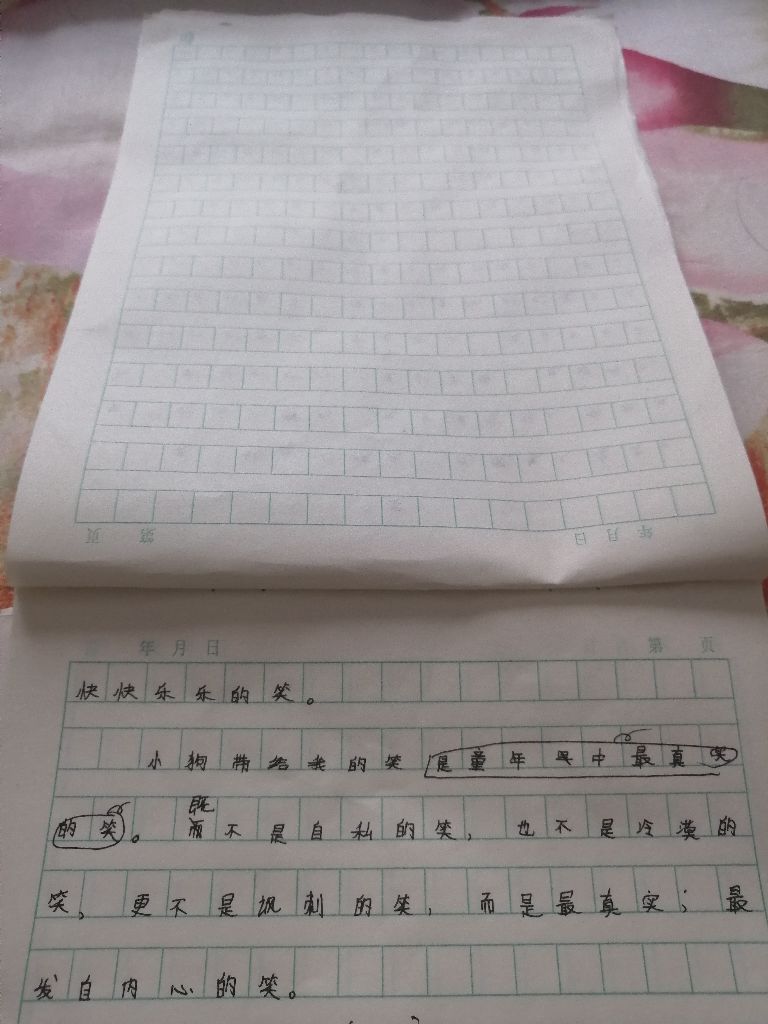 页 第 日 月 年
年 月 日 第 页
快快乐乐的笑。
小狗带给我的笑是童年里中最真笑
的笑。既而不是自私的笑，也不是冷漠的
笑，更不是讽刺的笑，而是最真实；最
发自内心的笑。